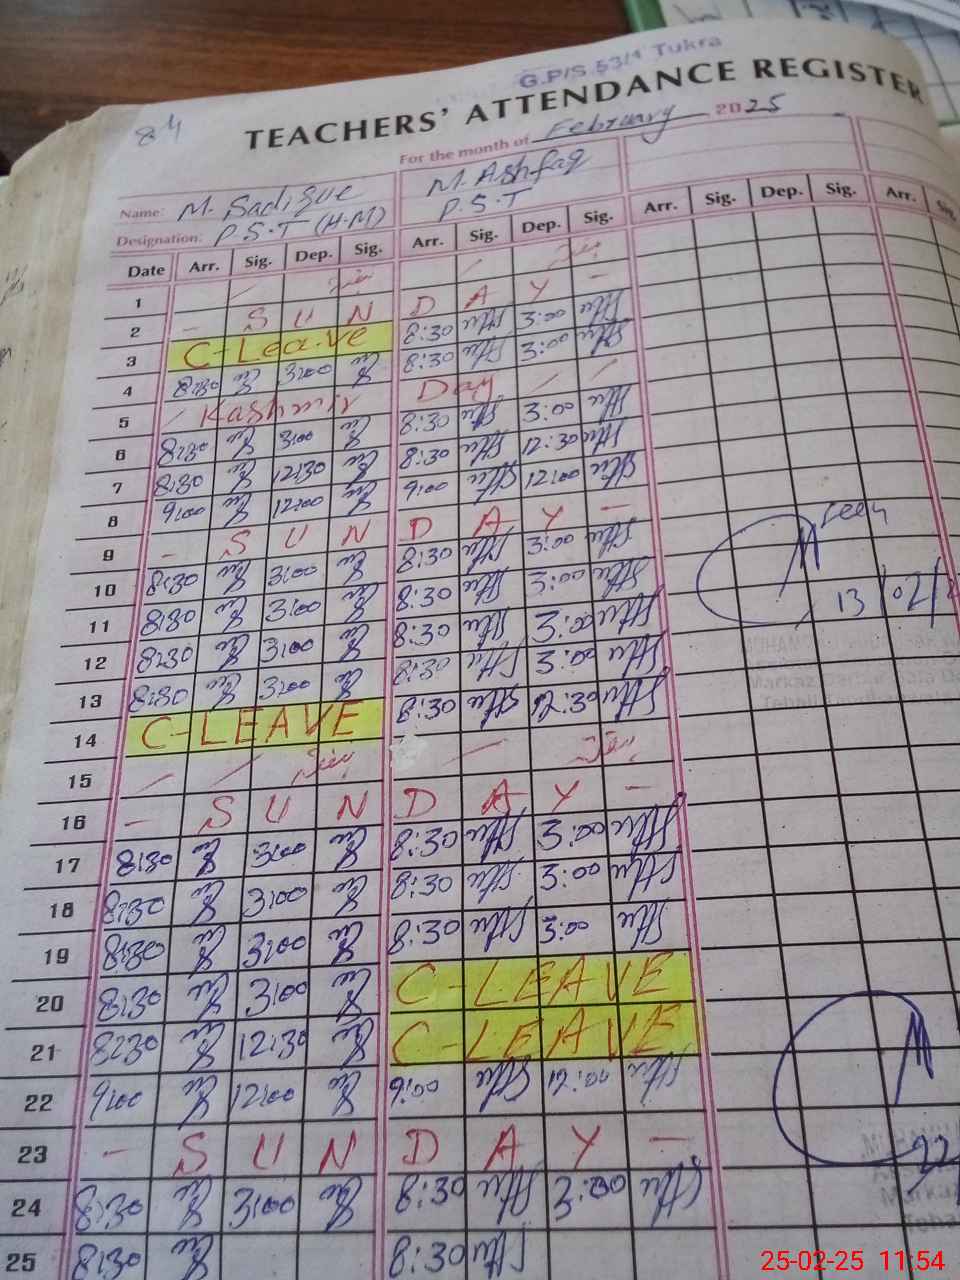 G.P/S.53/4 Tukra
84
TEACHERS' ATTENDANCE REGISTER
For the month of February 2025
Name: M. Sadique M. Ashfaq
Designation: P.S.T (H.M) P.S.T
Date Arr. Sig. Dep. Sig. Arr. Sig. Dep. Sig. Arr. Sig. Dep. Sig. Arr. Sig.
1
2 - S U N D A Y -
3 C-Leave 8:30 3:00
4 8:30 3:00 8:30 3:00
5 Kashmir Day
6 8:30 3:00 8:30 3:00
7 8:30 12:30 8:30 12:30
8 9:00 12:00 9:00 12:00
9 - S U N D A Y -
10 8:30 3:00 8:30 3:00
11 8:30 3:00 8:30 3:00
12 8:30 3:00 8:30 3:00
13 8:30 3:00 8:30 3:00
14 C-LEAVE 8:30 12:30
15
16 - S U N D A Y -
17 8:30 3:00 8:30 3:00
18 8:30 3:00 8:30 3:00
19 8:30 3:00 8:30 3:00
20 8:30 3:00 C-LEAVE
21 8:30 12:30 C-LEAVE
22 9:00 12:00 9:00 12:00
23 - S U N D A Y -
24 8:30 3:00 8:30 3:00
25 8:30 8:30
Seen
13/02/2
Markaz
Tehsil
22
25-02-25 11:54